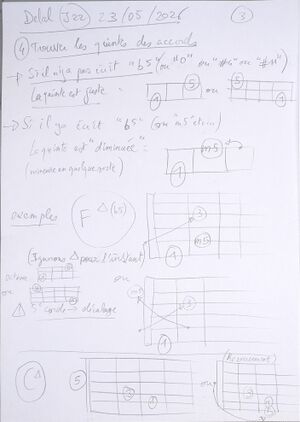 Debal J22 23/05/2026 3
④ Trouver les quintes des accords
→ S'il n'y a pas écrit "b5" (ou "o" ou "#5" ou "#11")
La quinte est juste: 5 1 ou 5 1
→ Si il y a écrit "b5" (ou "m5" etc...)
La quinte est "diminuée" = m5 1
(mineure en quelque sorte)
exemples F Δ(b5) 3 m5 1
(Ignorons Δ pour l'instant)
octave ou
ou
⚠ 5e corde → décalage 3 1
CΔ 5 ou (Renversement)